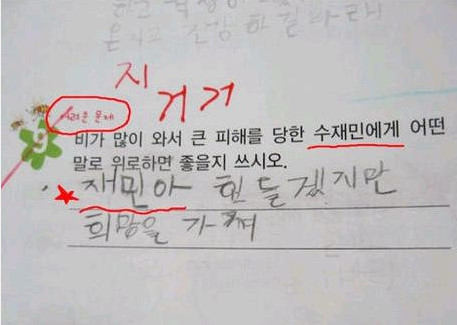 은 사고 건강 하 길 바라
지
거 거
어려운 문제
9 비가 많이 와서 큰 피해를 당한 수재민에게 어떤
말로 위로하면 좋을지 쓰시오.
재민아 힘들겠지만
희망을 가져